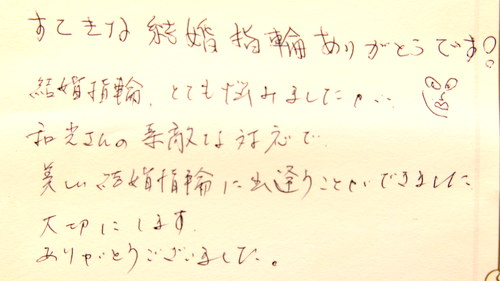 すてきな結婚指輪ありがとうです!
結婚指輪、とても悩みましたが…
和光さんの素敵な対応で
美しい結婚指輪に出逢うことができました
大切にします
ありがとうございました。